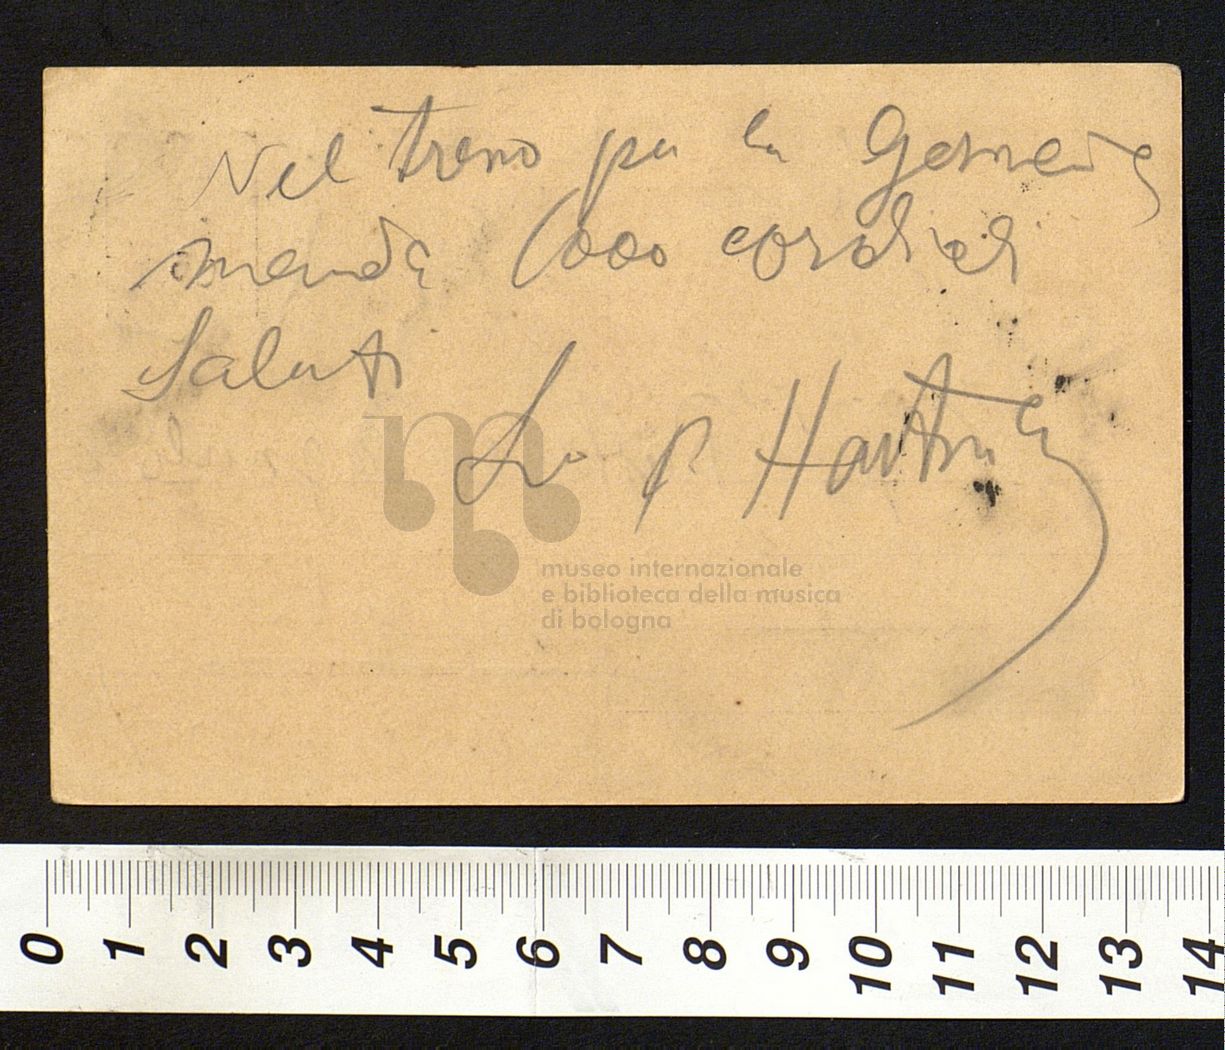 Nel treno per la Germania
manda 1000 cordiali
Saluti
Suo P Hartmann
museo internazionale
e biblioteca della musica
di bologna
0 1 2 3 4 5 6 7 8 9 10 11 12 13 14